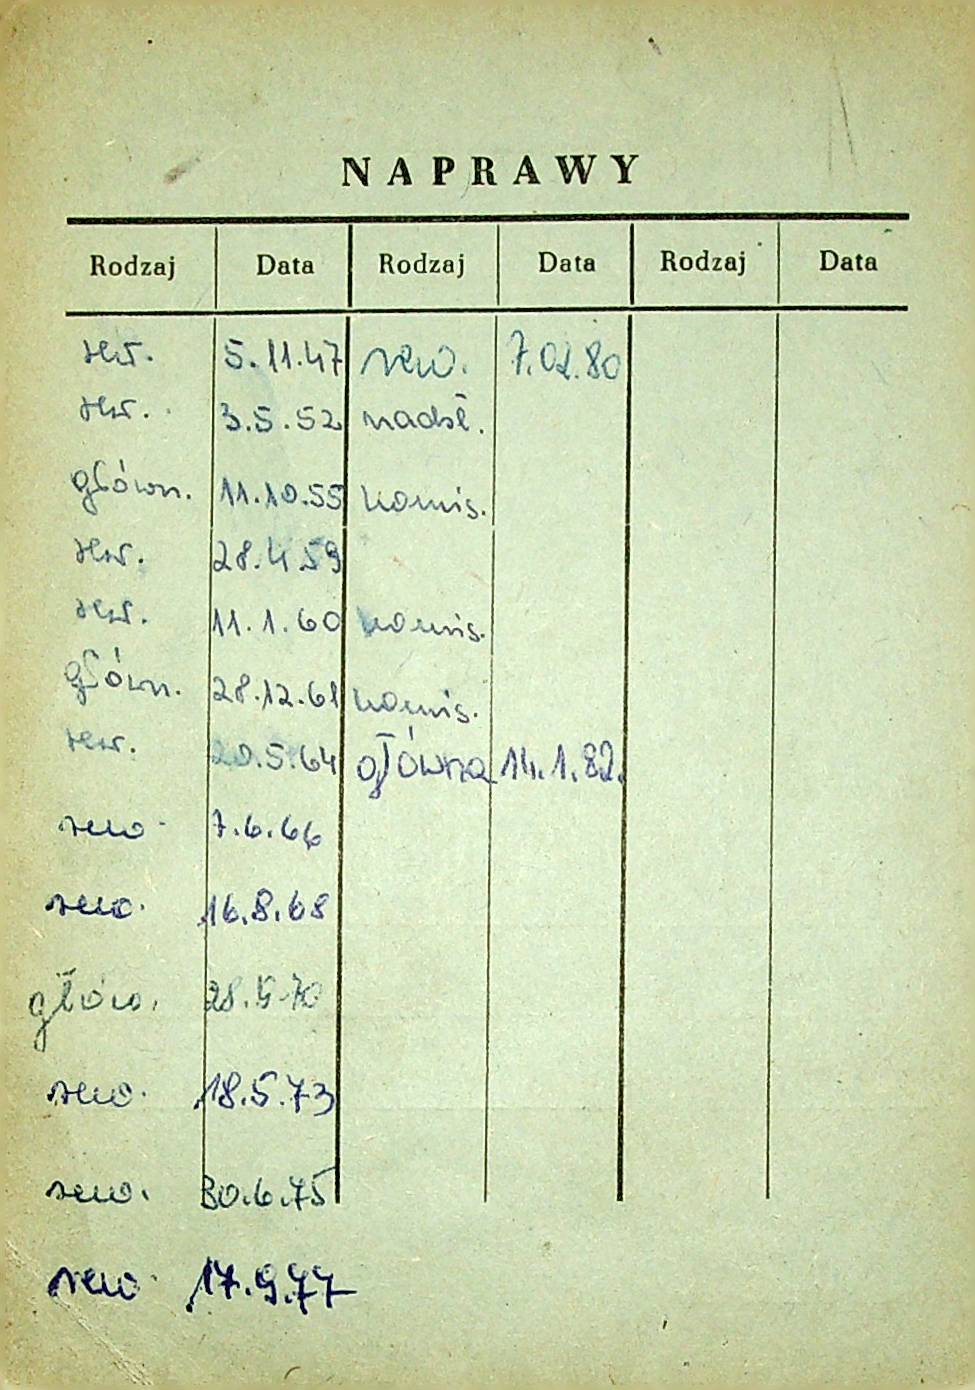 NAPRAWY
Rodzaj Data Rodzaj Data Rodzaj Data
rew. 5.11.47 rew. 7.02.80
rew. 3.5.52 nadzł.
główn. 11.10.55 komis.
rew. 28.4.59
rew. 11.1.60 komis.
główn. 28.12.61 komis.
rew. 20.5.64 główna 14.1.82.
rew. 7.6.66
rew. 16.8.68
główn. 28.9.70
rew. 18.5.73
rew. 30.6.75
rew. 17.9.77